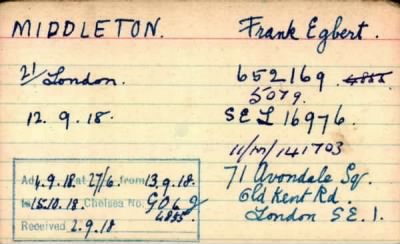 MIDDLETON. Frank Egbert.
21/London. 652169. 4855
5079.
12. 9. 18. SEL 16976.
11/M/141703
71 Avondale Sq.
Old Kent Rd.
London S.E.1.
Ad 4.9.18 at 27/6 from 13.9.18.
to 15.10.18. Chelsea No.
4855
Received 2.9.18